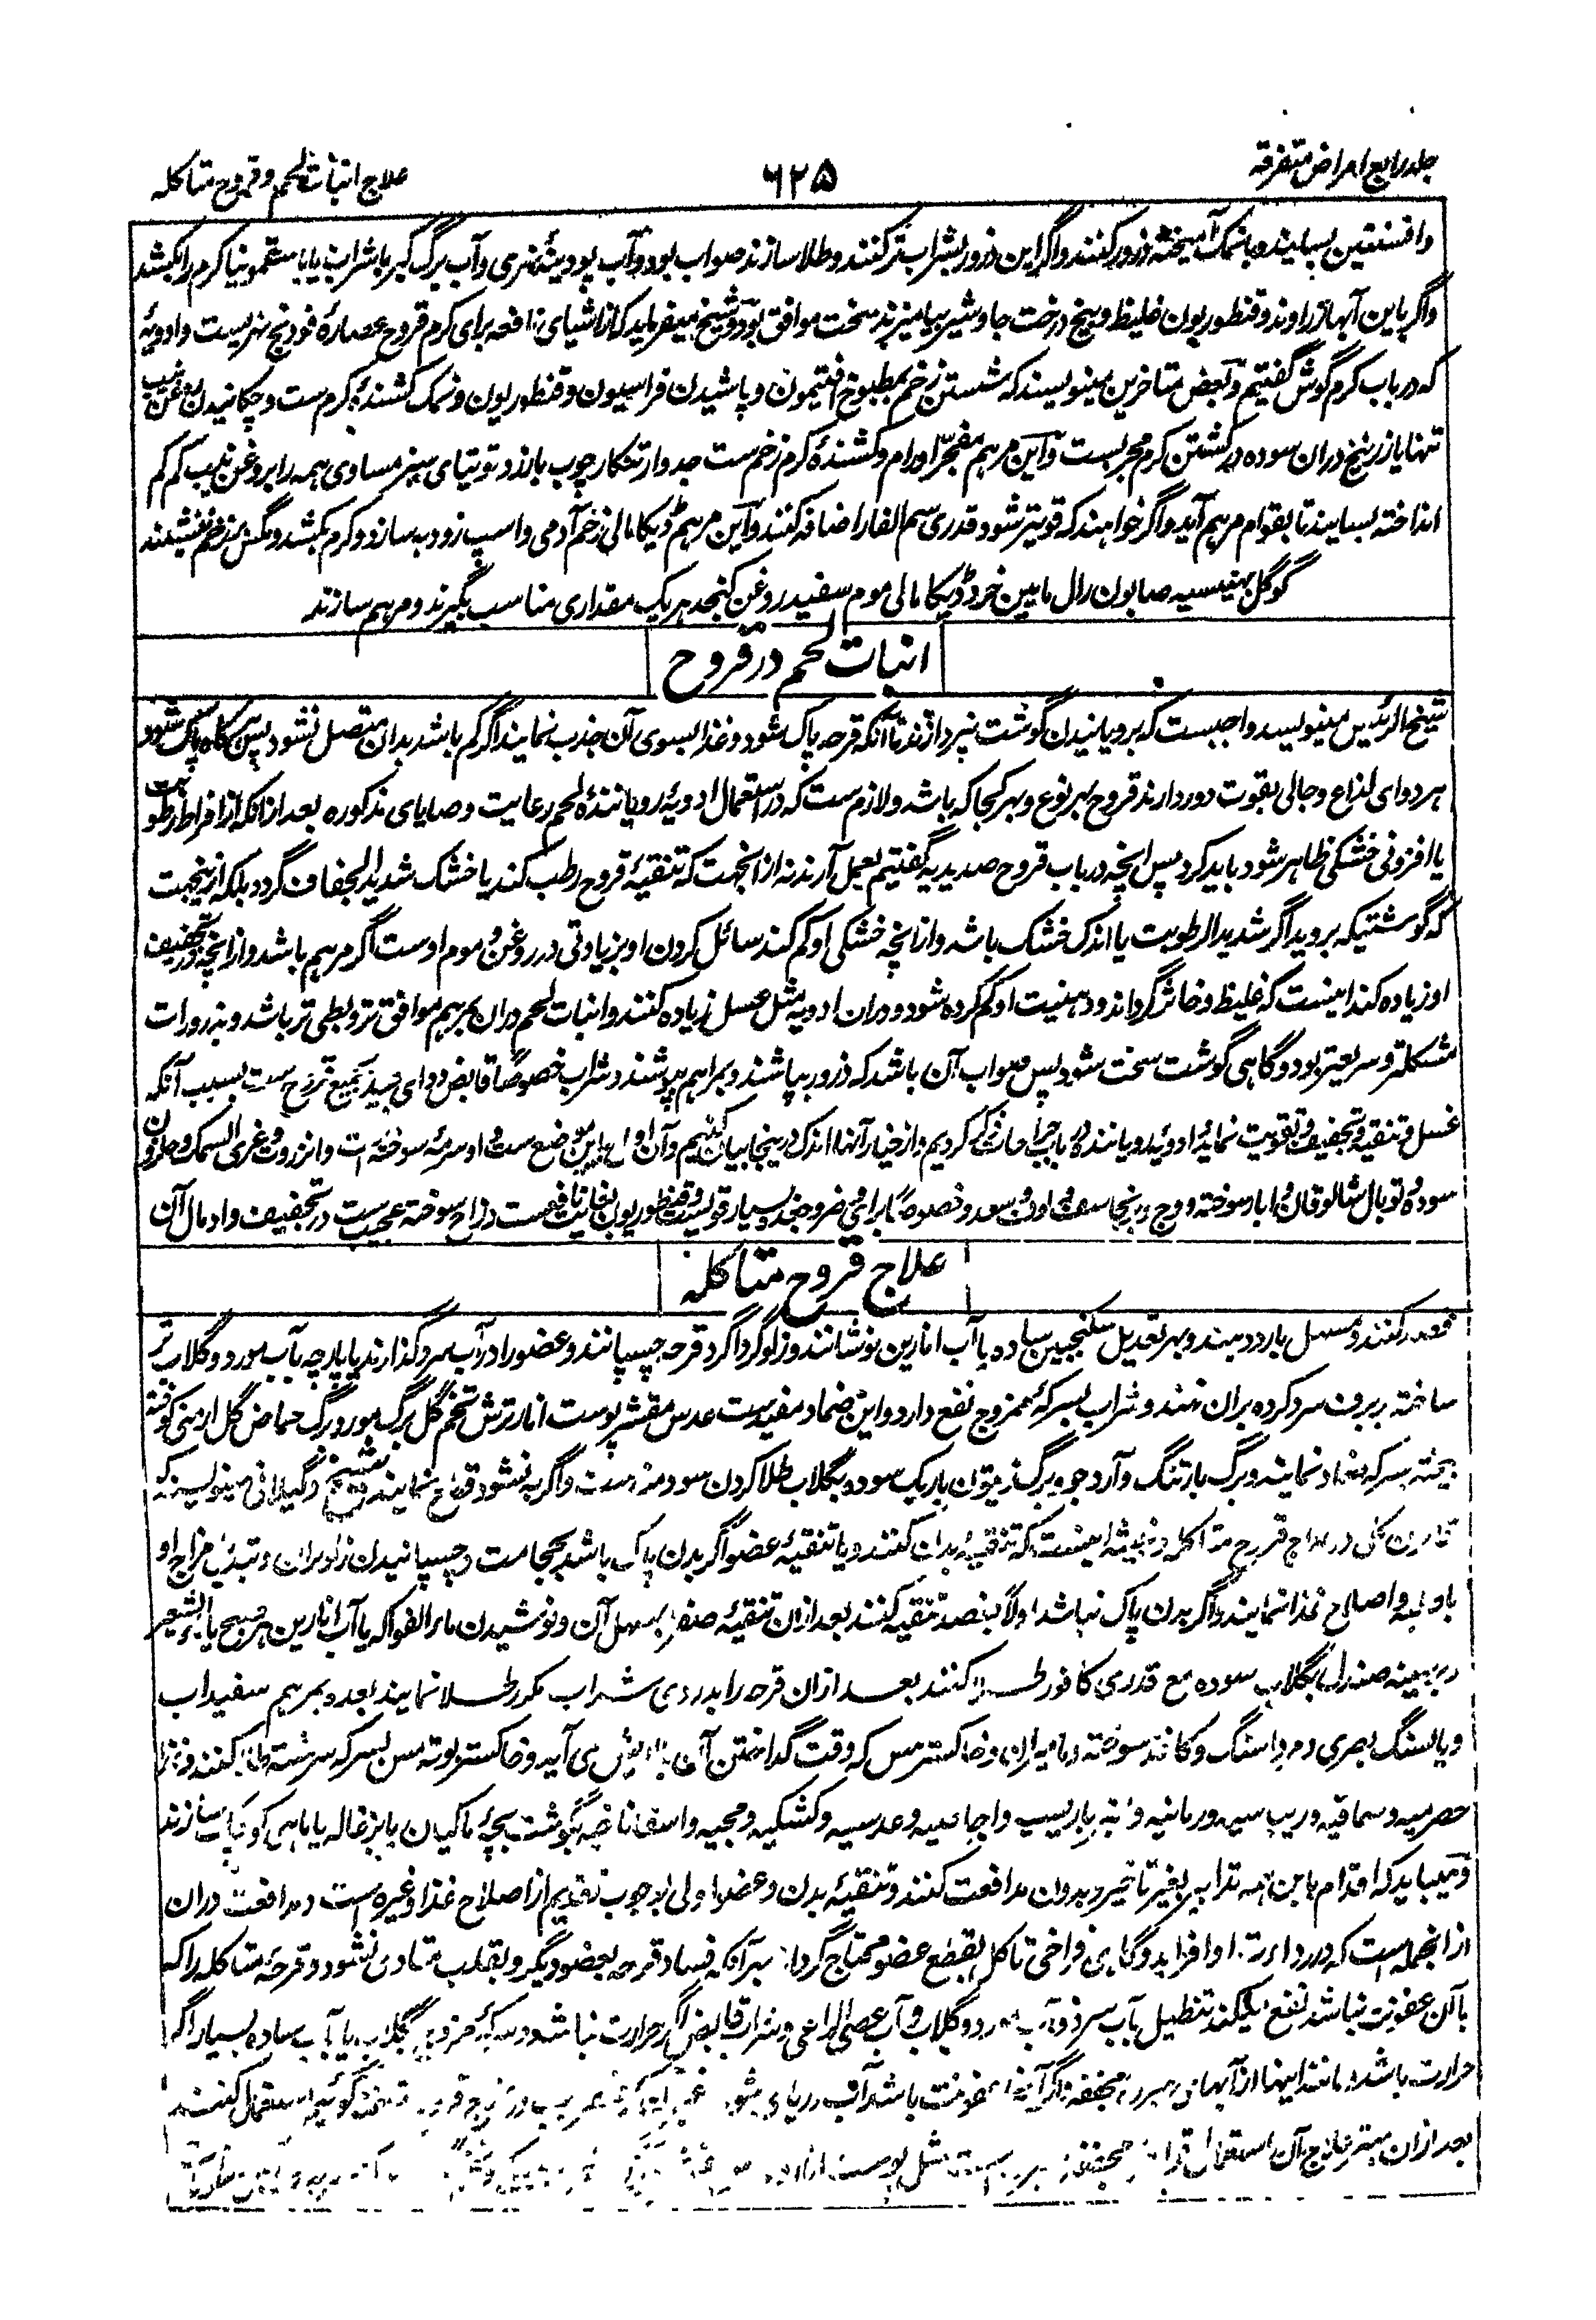 جلد رابع امراض متفرقه
۶۲۵
علاج انبات لحم و قروح متاکله
وافسنتین بسایند و بانمک آمیخته ذرور کنند و اگر این ذرور بشراب تر کنند و طلا سازند صواب بود و آب پودینهٔ نهری و آب برگ کبر با شراب یا با سقمونیا کرم را بکشد
و اگر باین آبها زراوند و قنطوریون غلیظ و بیخ درخت جاوشیر بیامیزند سخت موافق بود و شیخ میفرماید که از اشیای نافعه برای کرم قروح عصارهٔ فودنج نهریست و ادویهٔ
که در باب کرم گوش گفتیم و بعض متاخرین مینویسند که شستن زخم بمطبوخ افتیمون و پاشیدن فراسیون و قنطوریون و نمک کشندهٔ کرم ست و چکانیدن روغن نیب
تنها یا زرنیخ دران سوده در کشتن کرم مجربست و این مرهم مفجر اورام و کشندهٔ کرم زخم ست جدوار تنکار چوب بارزد توتیای سبز مساوی همه را بروغن نیب کم کم
انداخته بسایند تا بقوام مرهم آید و اگر خواهند که قویتر شود قدری سم الفار اضافه کنند و این مرهم ڈیکامالی زخم آدمی و اسپ زود به سازد و کرم بکشد و مگس بر زخم ننشیند
گوگل بهینسیه صابون رال مامین خرد ڈیکامالی موم سفید روغن کنجد هریک مقداری مناسب بگیرند و مرهم سازند
انبات لحم در قروح
شیخ الرئیس مینویسد واجبست که برویانیدن گوشت نپردازند تا آنکه قرحه پاک شود و غذا بسوی آن جذب نمایند اگر کم باشد بدان متصل نشود پس هرگاه پاک شود
هر دوای لذاع و جالی بقوت دور دارند قروح بهر نوع و بهر کجا که باشد و لازم ست که در استعمال ادویهٔ رویانندهٔ لحم رعایت وصایای مذکوره بعد ازانکه از افراط رطوبت
یا افزونی خشکی ظاهر شود باید کرد پس انچه در باب قروح صدیدیه گفتیم بعمل آرند نه از انجهت که تنقیهٔ قروح رطب کند یا خشک شدید الجفاف گردد بلکه ازینجهت
که گوشتیکه بروید اگر شدید الرطوبت یا اندک خشک باشد و ازانچه خشکی او کم کند سائل کردن او بزیادتی در روغن و موم اوست اگر مرهم باشد و ازانچه در تجفیف
او زیاده کند اینست که غلیظ و خاثر گرداند و دهنیت او کم کرده شود و دران ادویه مثل عسل زیاده کنند و انبات لحم دران بمرهم موافق تر و بطی تر باشد و بذرورات
مشکلتر و سریعتر بود و گاهی گوشت سخت شود پس صواب آن باشد که ذرور بپاشند و بمراهم بپوشند و شراب خصوصاً قابض دوای جید جمیع قروح ست بسبب آنکه
غسل و تنقیه و تجفیف و تقویت نماید ادویهٔ رویاننده در باب جراحات ذکر کردیم و از خیار آنها اندک درینجا بیان کنیم و آن اولی باین موضع ست و او سرمه سوخته است و انزروت و غری السمک و حلزون
سوده و توبال شالوقان و ابار سوخته و وج و برنجاسف و اون و سعد و خصوصاً برای قروح جید و بسیار قویست و قنطوریون بغایت نافعست و زاج سوخته عجیب ست در تجفیف و ادمال آن
علاج قروح متاکله
فصد کنند و مسهل بارد دهند و بهر تعدیل سکنجبین ساده با آب انارین نوشانند و زلو گرداگرد قرحه چسپانند و عضو را در آب سرد گذارند یا پارچه بآب مورد و گلاب تر
ساخته ببرف سرد کرده بران نهند و شراب بسرکهٔ ممزوج نفع دارد و این ضماد مفیدست عدس مقشر پوست انار ترش تخم گل برگ مورد برگ حماض گل ارمنی کوفته
بیخته بسرکه ضماد نمایند و برگ بارتنگ و آرد جو و برگ زیتون باریک سوده بگلاب طلا کردن سودمندست و اگر به نشود قطع نمایند شیخ و گیلانی مینویسند که
قانون کلی در علاج قروح متاکله و خبیثه اینست که تنقیهٔ بدن کنند و یا تنقیهٔ عضو اگر بدن پاک باشد بحجامت و چسپانیدن زلو بران و تبدیل مزاج او
بادویه و اصلاح غذا نمایند و اگر بدن پاک نباشد اولاً بفصد تنقیه کنند بعد ازان تنقیهٔ صفرا بمسهل آن و نوشیدن ماء الفواکه یا آب انارین هر صبح یا ماء الشعیر
در بهینه صندل بگلاب سوده مع قدری کافور طلا کنند بعد ازان قرحه را بدردی شراب مکرر طلا نمایند بعده بمرهم سفیداب
و یا سنگ بصری و مرداسنگ و کاغذ سوخته و خاکستر مس که وقت گداختن آن می آید و خاکستر بوته مس بسرکه سرشته طلا کنند و غذا
حصرمیه و سماقیه و ریباسیه و رمانیه و اجاصیه و عدسیه و کشکیه و مجیه و اسفاناخیه بگوشت بچهٔ ماکیان یا بزغاله یا ماهی کوچک سازند
و میباید که اقدام باین همه تدابیر بغیر تاخیر و بدون مدافعت کنند و تنقیهٔ بدن و عضو اولی بوجوب تقدیم از اصلاح غذا و غیره ست و مدافعت دران
ازانجمله ست که در رداءت او افزاید و گاهی فراخی تاکل بقطع عضو محتاج گرداند بهر آنکه فساد قرحه بعضو دیگر و بقلب متادی نشود و قرحهٔ متاکله را که
با آن عفونت نباشد نفع میکند تنطیل بآب سرد و آب مورد و گلاب و آب عصی الراعی و شراب قابض اگر حرارت نباشد و سرکهٔ ممزوج بگلاب یا بآب ساده بسیار اگر
حرارت باشد و مانند اینها از آبهای مبرده مجففه و اگر عفونت باشد آب دریای شور
بعد ازان بهتر علاج آن استعمال مجففه مثل پوست انار